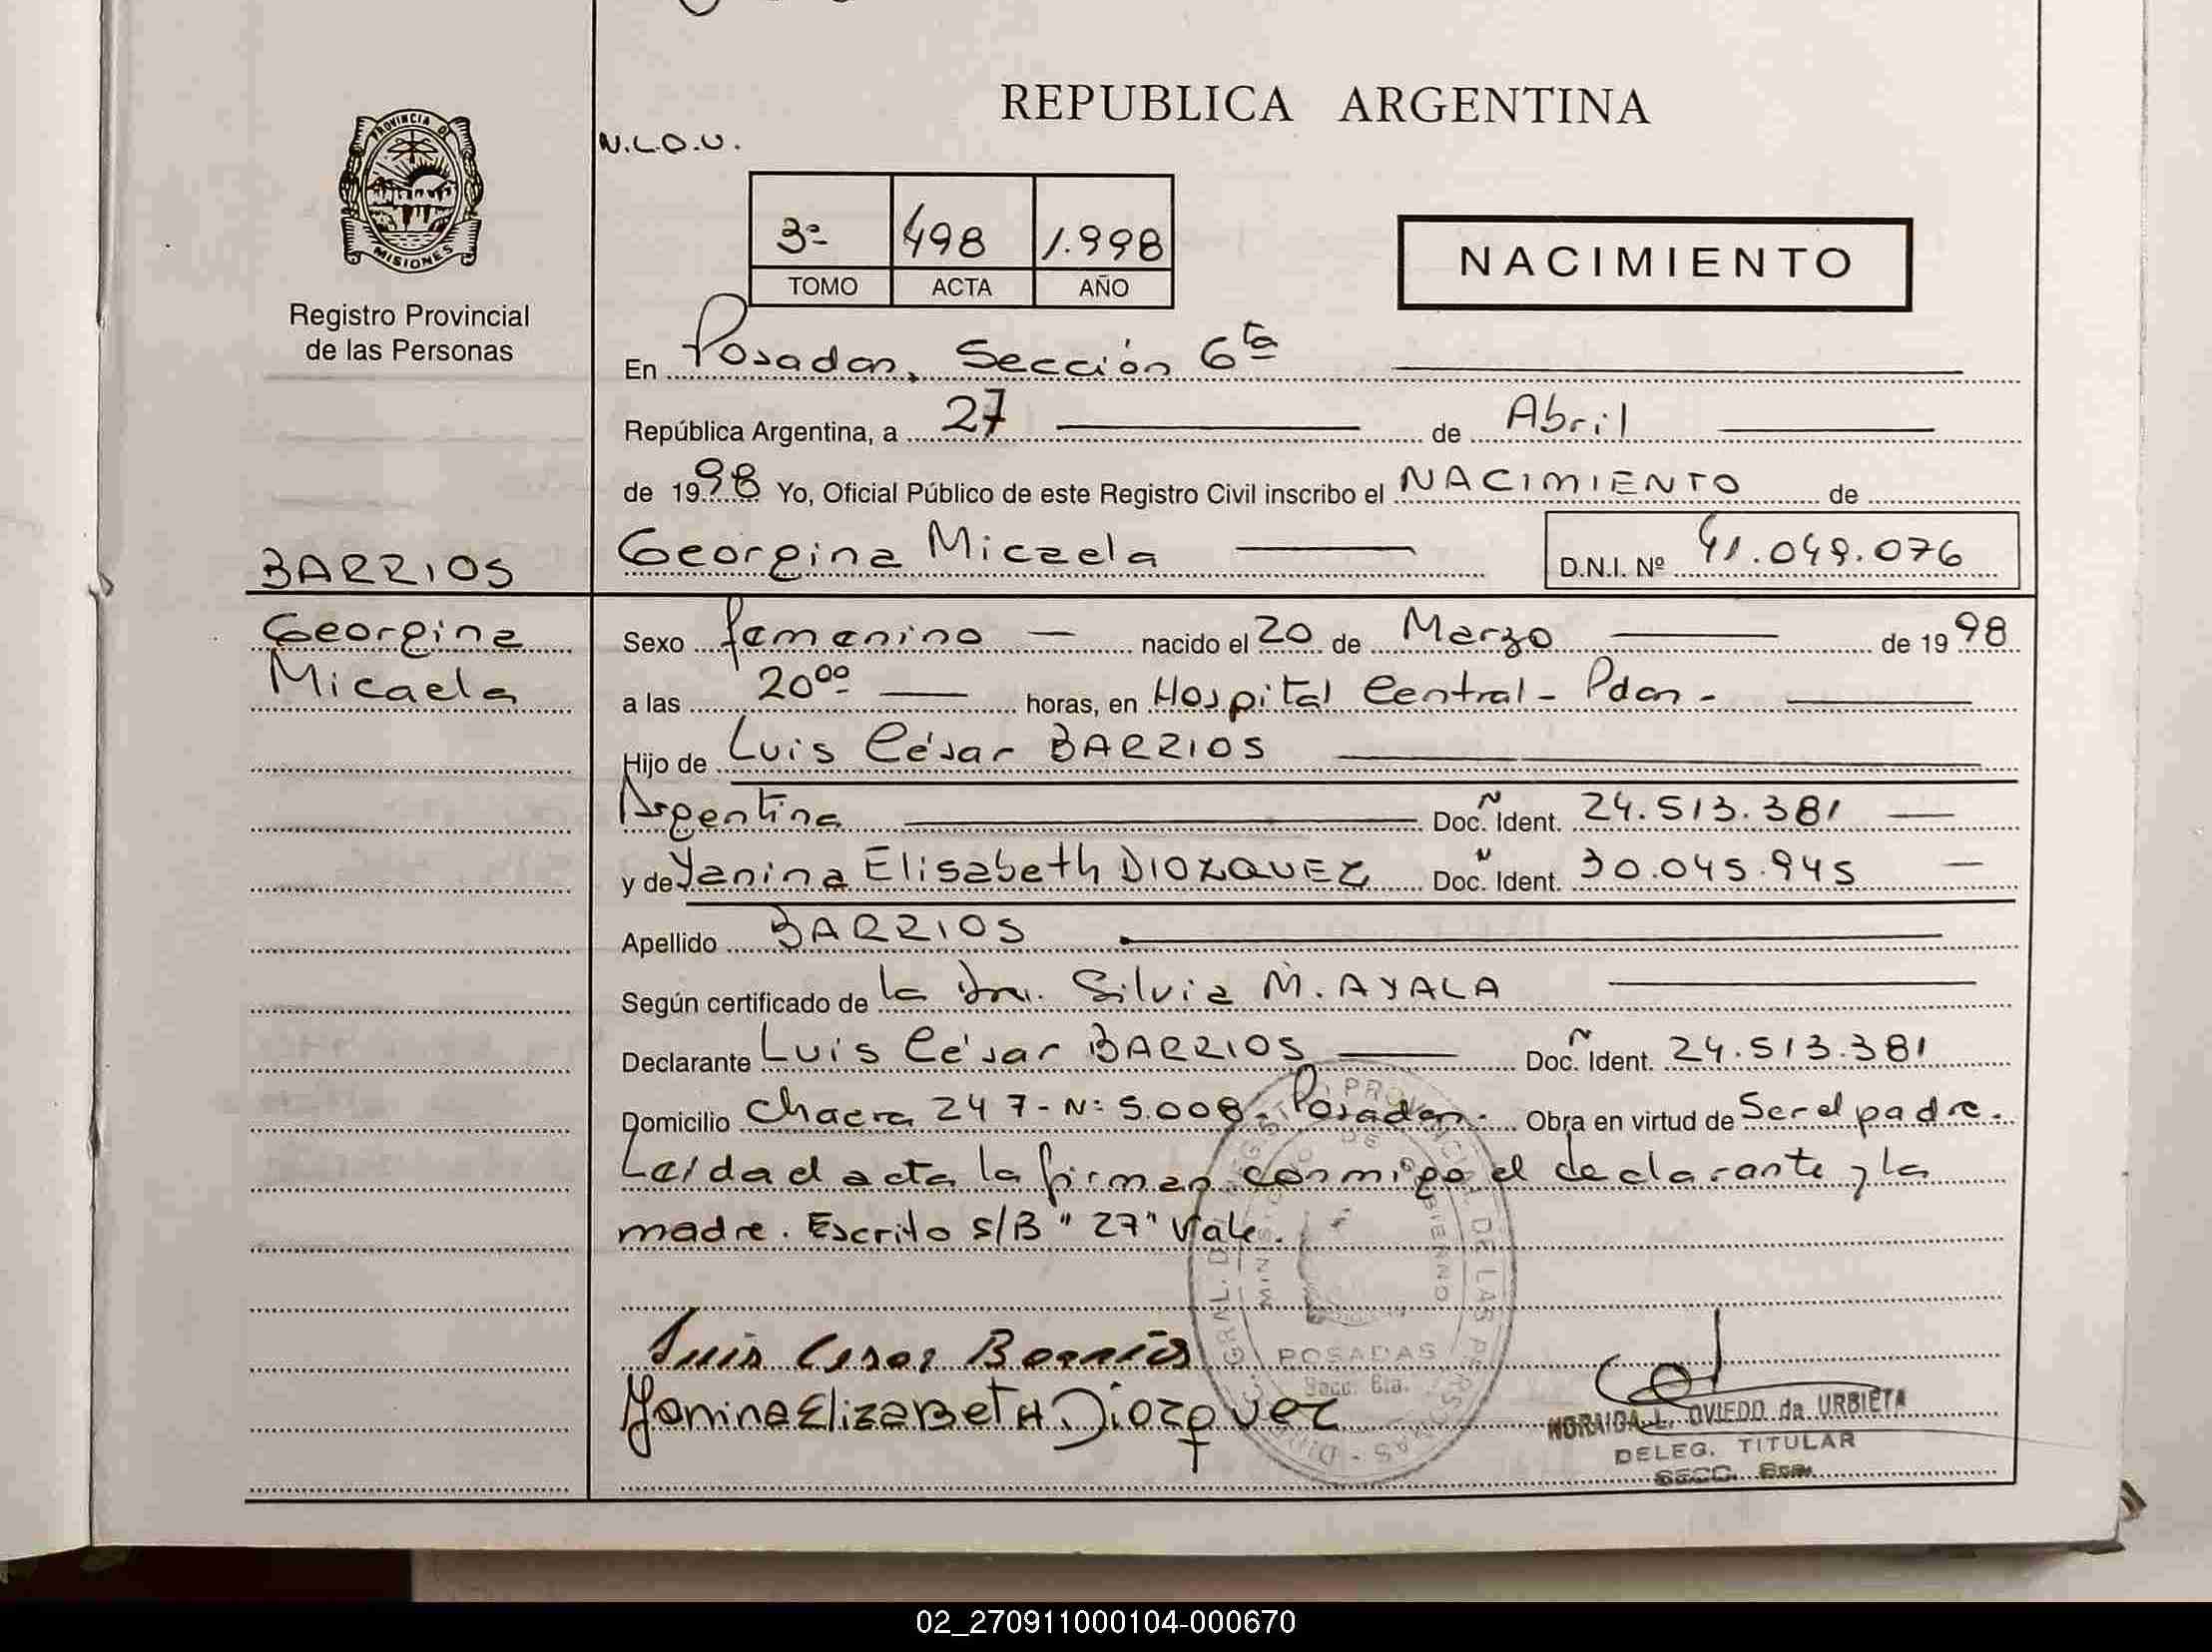 REPUBLICA ARGENTINA
PROVINCIA DE
MISIONES
Registro Provincial
de las Personas
N.L.O.U.
3º 498 1.998
TOMO ACTA AÑO
NACIMIENTO
En Posadas, Sección 6ta
República Argentina, a 27 de Abril
de 1998 Yo, Oficial Público de este Registro Civil inscribo el NACIMIENTO de
BARRIOS
Georgina Micaela D.N.I. Nº 41.049.076
Georgina
Micaela
Sexo femenino nacido el 20 de Marzo de 1998
a las 20⁰⁰ horas, en Hospital Central - Pdas -
Hijo de Luis César BARRIOS
Argentina Doc. Ident. 24.513.381
y de Yanina Elisabeth DIOZQUEZ Doc. Ident. 30.045.945
Apellido BARRIOS
Según certificado de la Dra. Silvia M. AYALA
Declarante Luis César BARRIOS Doc. Ident. 24.513.381
Domicilio Chacra 247 - Nº 5.008 - Posadas. Obra en virtud de Ser el padre.
Leída el acta la firman conmigo el declarante y la
madre. Escrito s/B "27" Vale.
Luis Cesar Barrios
Yanina Elizabeth Diozquez
POSADAS
Secc. 6ta.
NORAIDA L. OVIEDO de URBIETA
DELEG. TITULAR
SECC. 6ta.
02_270911000104-000670